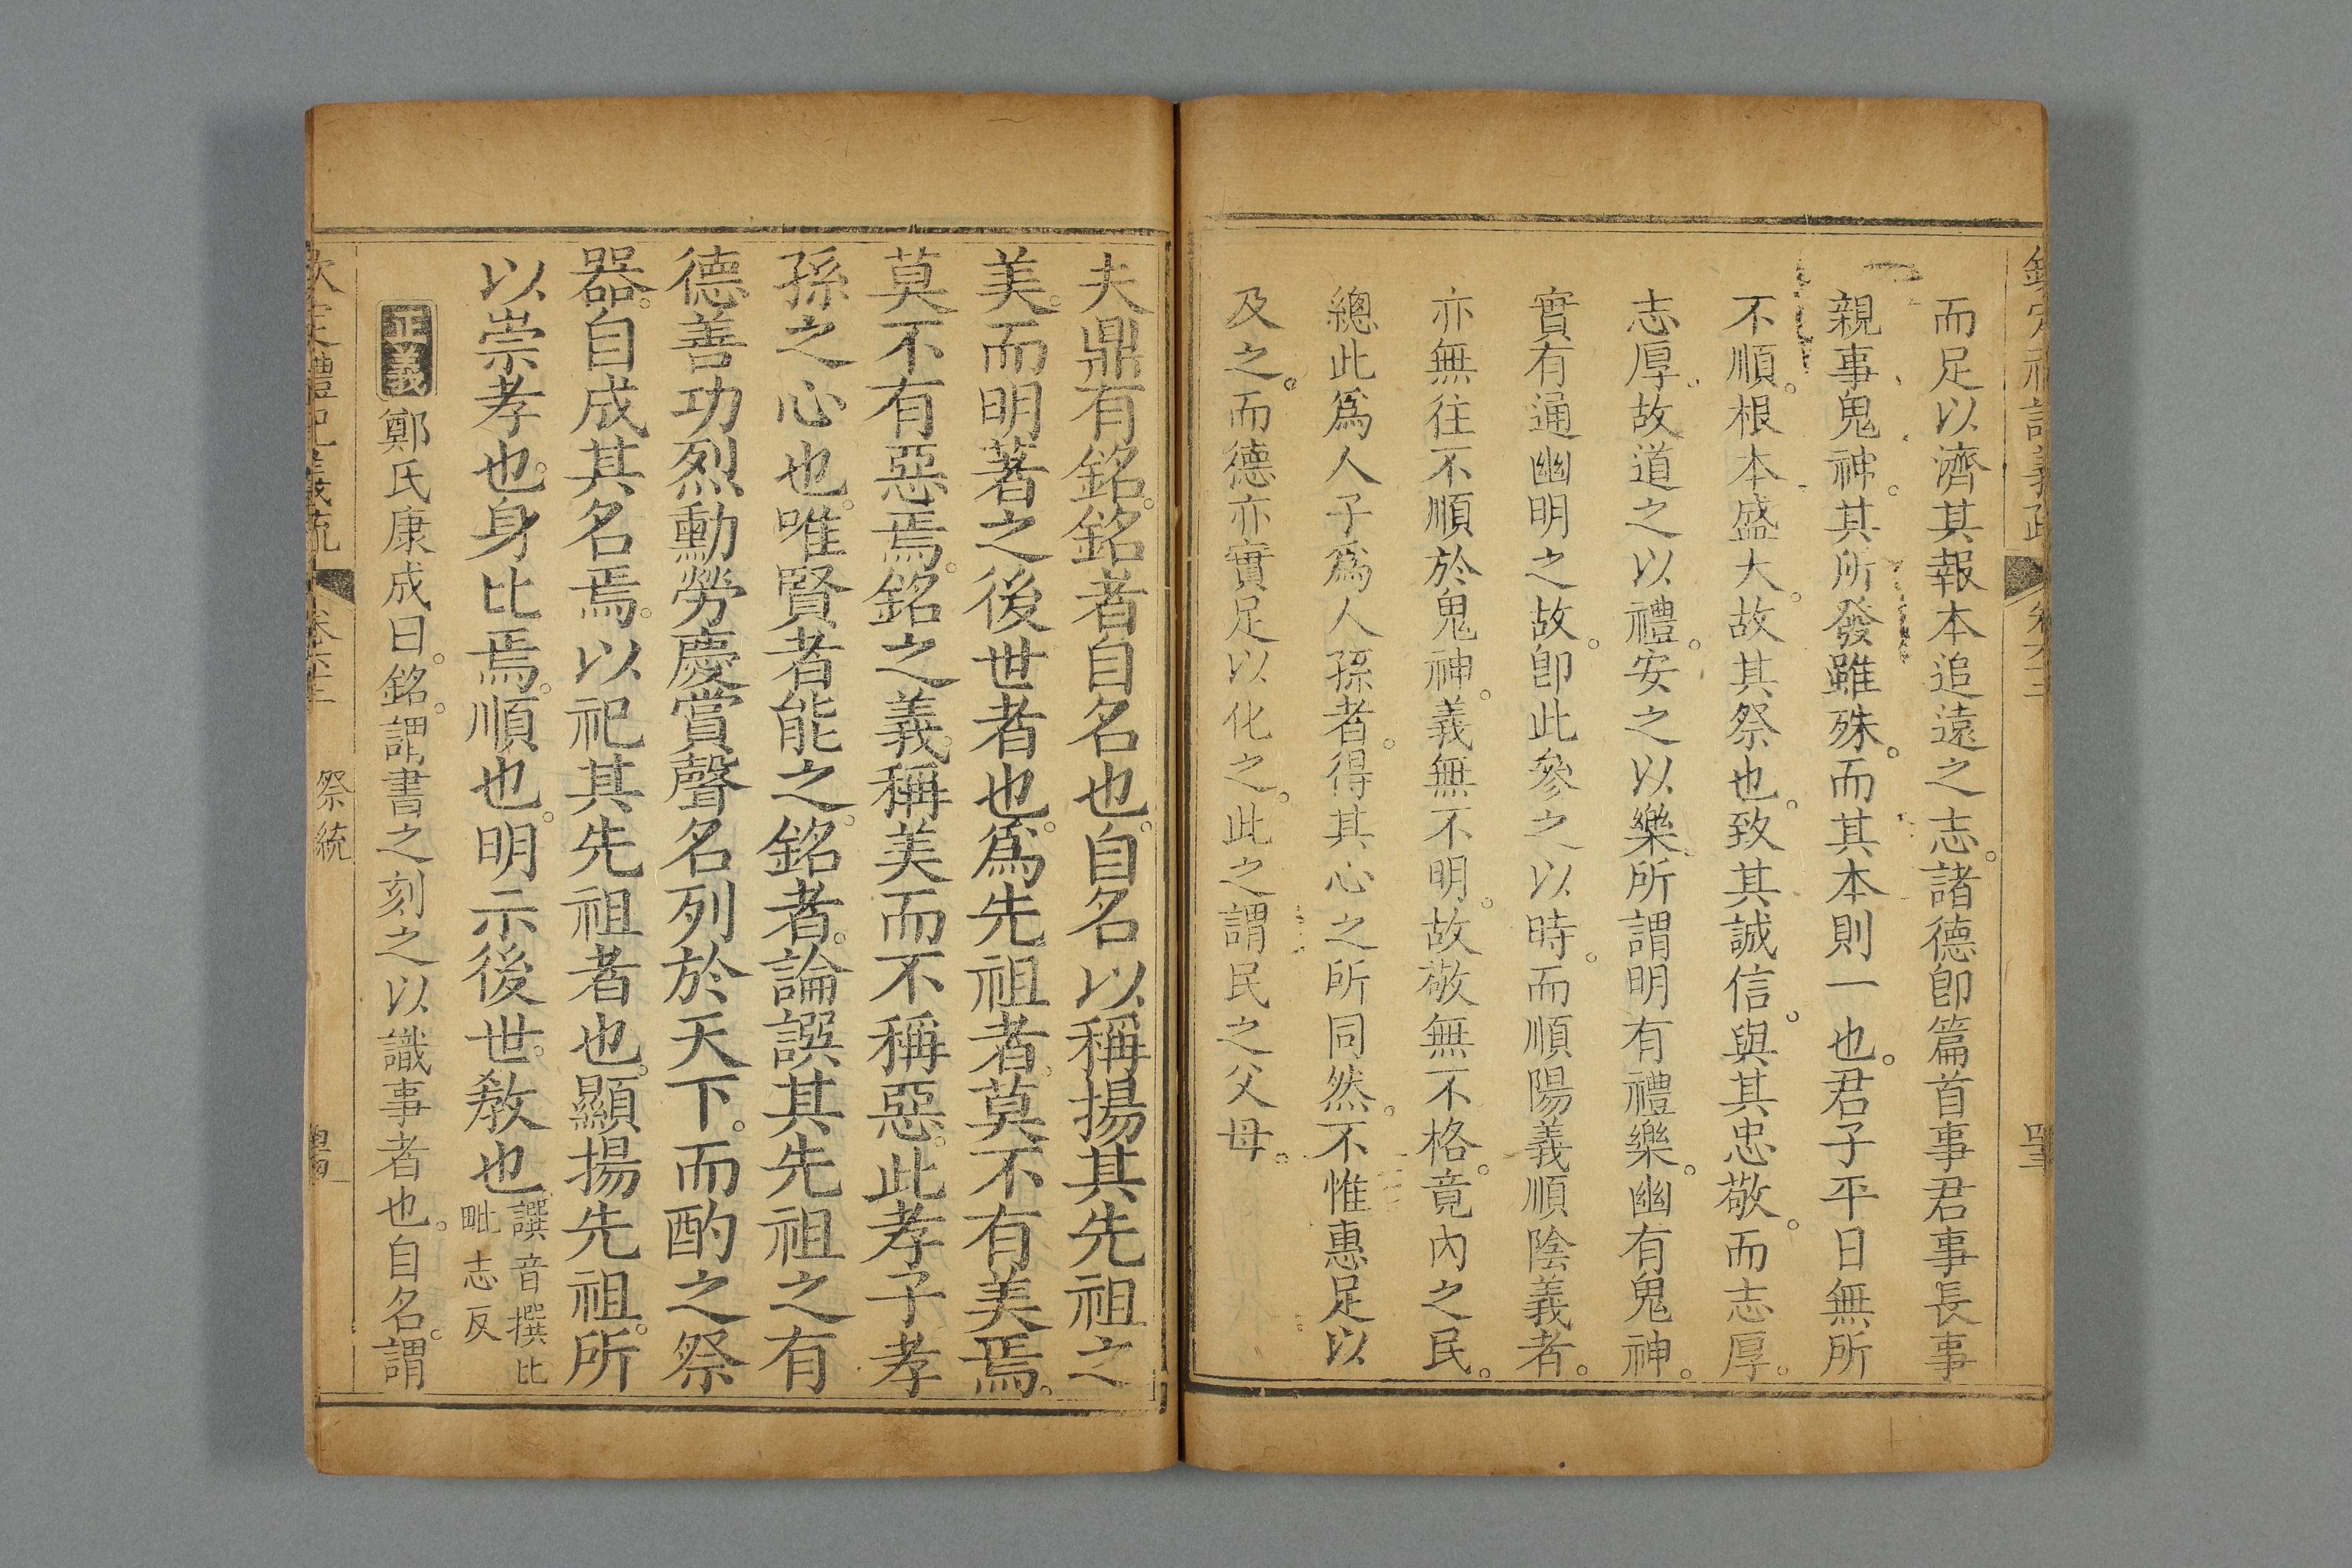 欽定禮記義疏 卷六十二
而足以濟其報本追遠之志。諸德卽篇首事君事長事
親事鬼神。其所發雖殊。而其本則一也。君子平日無所
不順。根本盛大。故其祭也。致其誠信。與其忠敬。而志厚。
志厚。故道之以禮。安之以樂。所謂明有禮樂。幽有鬼神。
實有通幽明之故。卽此參之以時。而順陽義順陰義者。
亦無往不順於鬼神。義無不明。故敬無不格。竟內之民。
總此爲人子爲人孫者。得其心之所同然。不惟惠足以
及之。而德亦實足以化之。此之謂民之父母。
夫鼎有銘。銘者自名也。自名以稱揚其先祖之
美。而明著之後世者也。爲先祖者。莫不有美焉。
莫不有惡焉。銘之義。稱美而不稱惡。此孝子孝
孫之心也。唯賢者能之。銘者。論譔其先祖之有
德善功烈勳勞慶賞聲名列於天下。而酌之祭
器。自成其名焉。以祀其先祖者也。顯揚先祖。所
以崇孝也。身比焉。順也。明示後世。敎也
譔音撰比
毗志反
正義 鄭氏康成曰。銘。謂書之刻之以識事者也。自名。謂
欽定禮記義疏 卷六十二 祭統